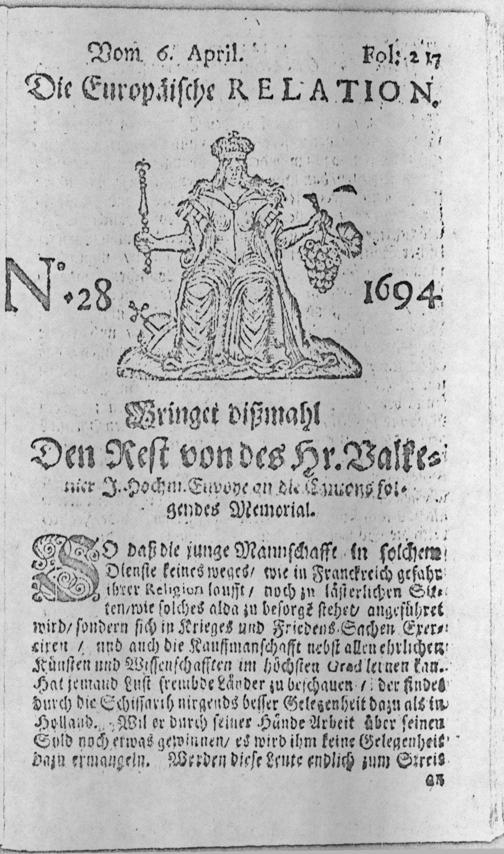 Vom 6. April. Fol: 217
Die Europäische RELATION.
No. 28 1694
Bringet dißmahl
Den Rest von des Hr. Valke-
nier J. Hochm. Envoye an die Cantons fol-
gendes Memorial.
SO daß die junge Mannschafft in solchem
Dienste keines weges/ wie in Franckreich gefahr
ihrer Religion laufft/ noch zu lästerlichen Sit-
ten/ wie solches alda zu besorgē stehet/ angeführet
wird/ sondern sich in Krieges und Friedens-Sachen Exer-
ciren / und auch die Kauffmanschafft nebst allen ehrlichen
Künsten und Wissenschafften im höchsten Grad lernen kan.
Hat jemand Lust frembde Länder zu beschauen / der findet
durch die Schiffarth nirgends besser Gelegenheit dazu als in
Holland. Wil er durch seiner Hände Arbeit über seinen
Sold noch etwas gewinnen/ es wird ihm keine Gelegenheit
dazu ermangeln. Werden diese Leute endlich zum Streit